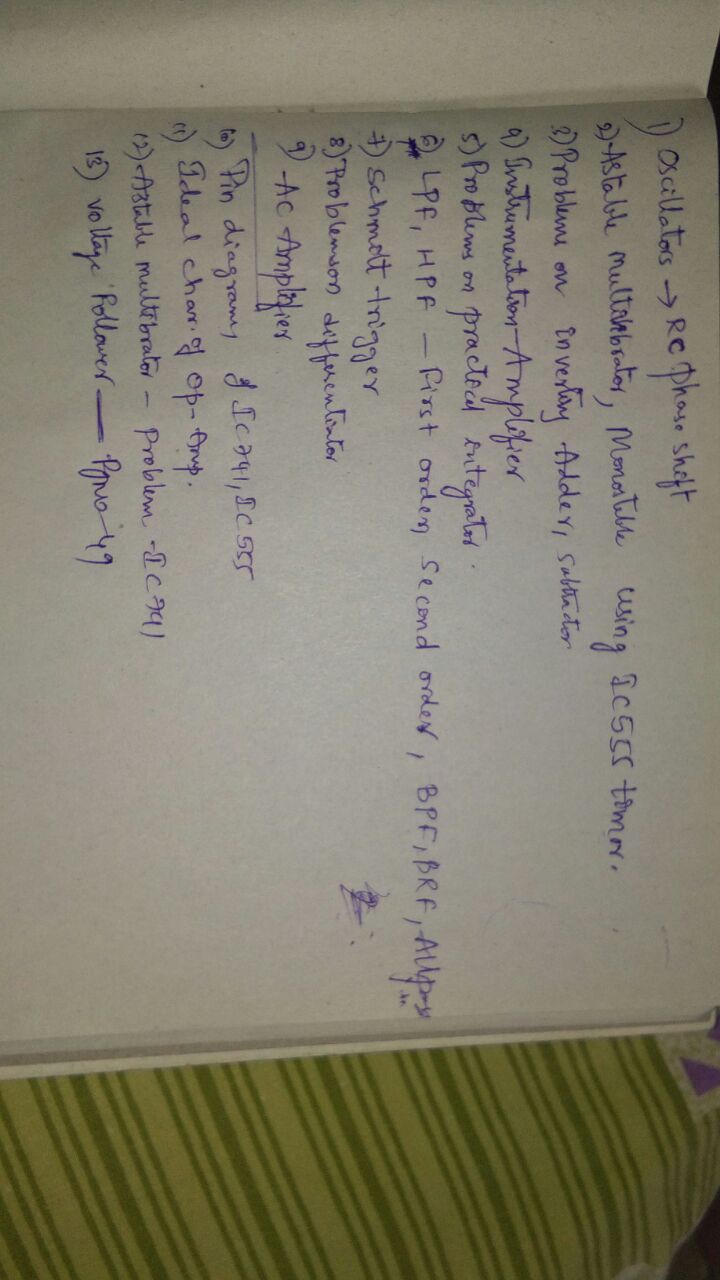 1) Oscillators → RC phase shift
2) Astable multivibrator, Monostable using IC555 timer.
3) Problems on inverting Adder, subtractor
4) Instrumentation-Amplifier
5) Problems on practical integrator.
6) LPF, HPF – First order, Second order, BPF, BRF, Allpass
7) Schmdt-trigger
8) Problems on differentiator
9) AC-Amplifier
10) Pin diagram, of IC741, IC555
11) Ideal char. of Op-Amp.
12) Astable multibrator – Problem – IC741
13) Voltage Follower — Pgno-49